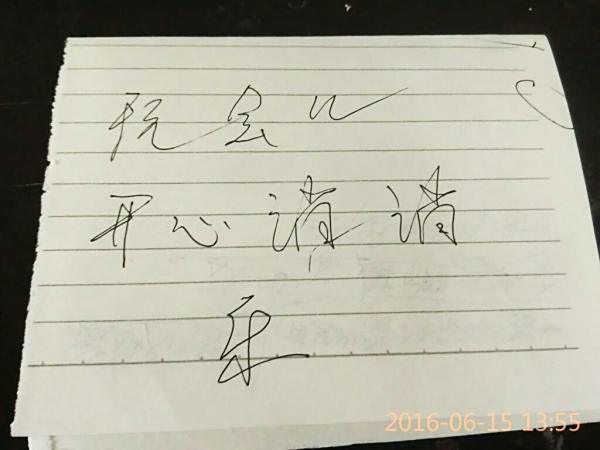 玩会儿
开心消消
乐
2016-06-15 13:55